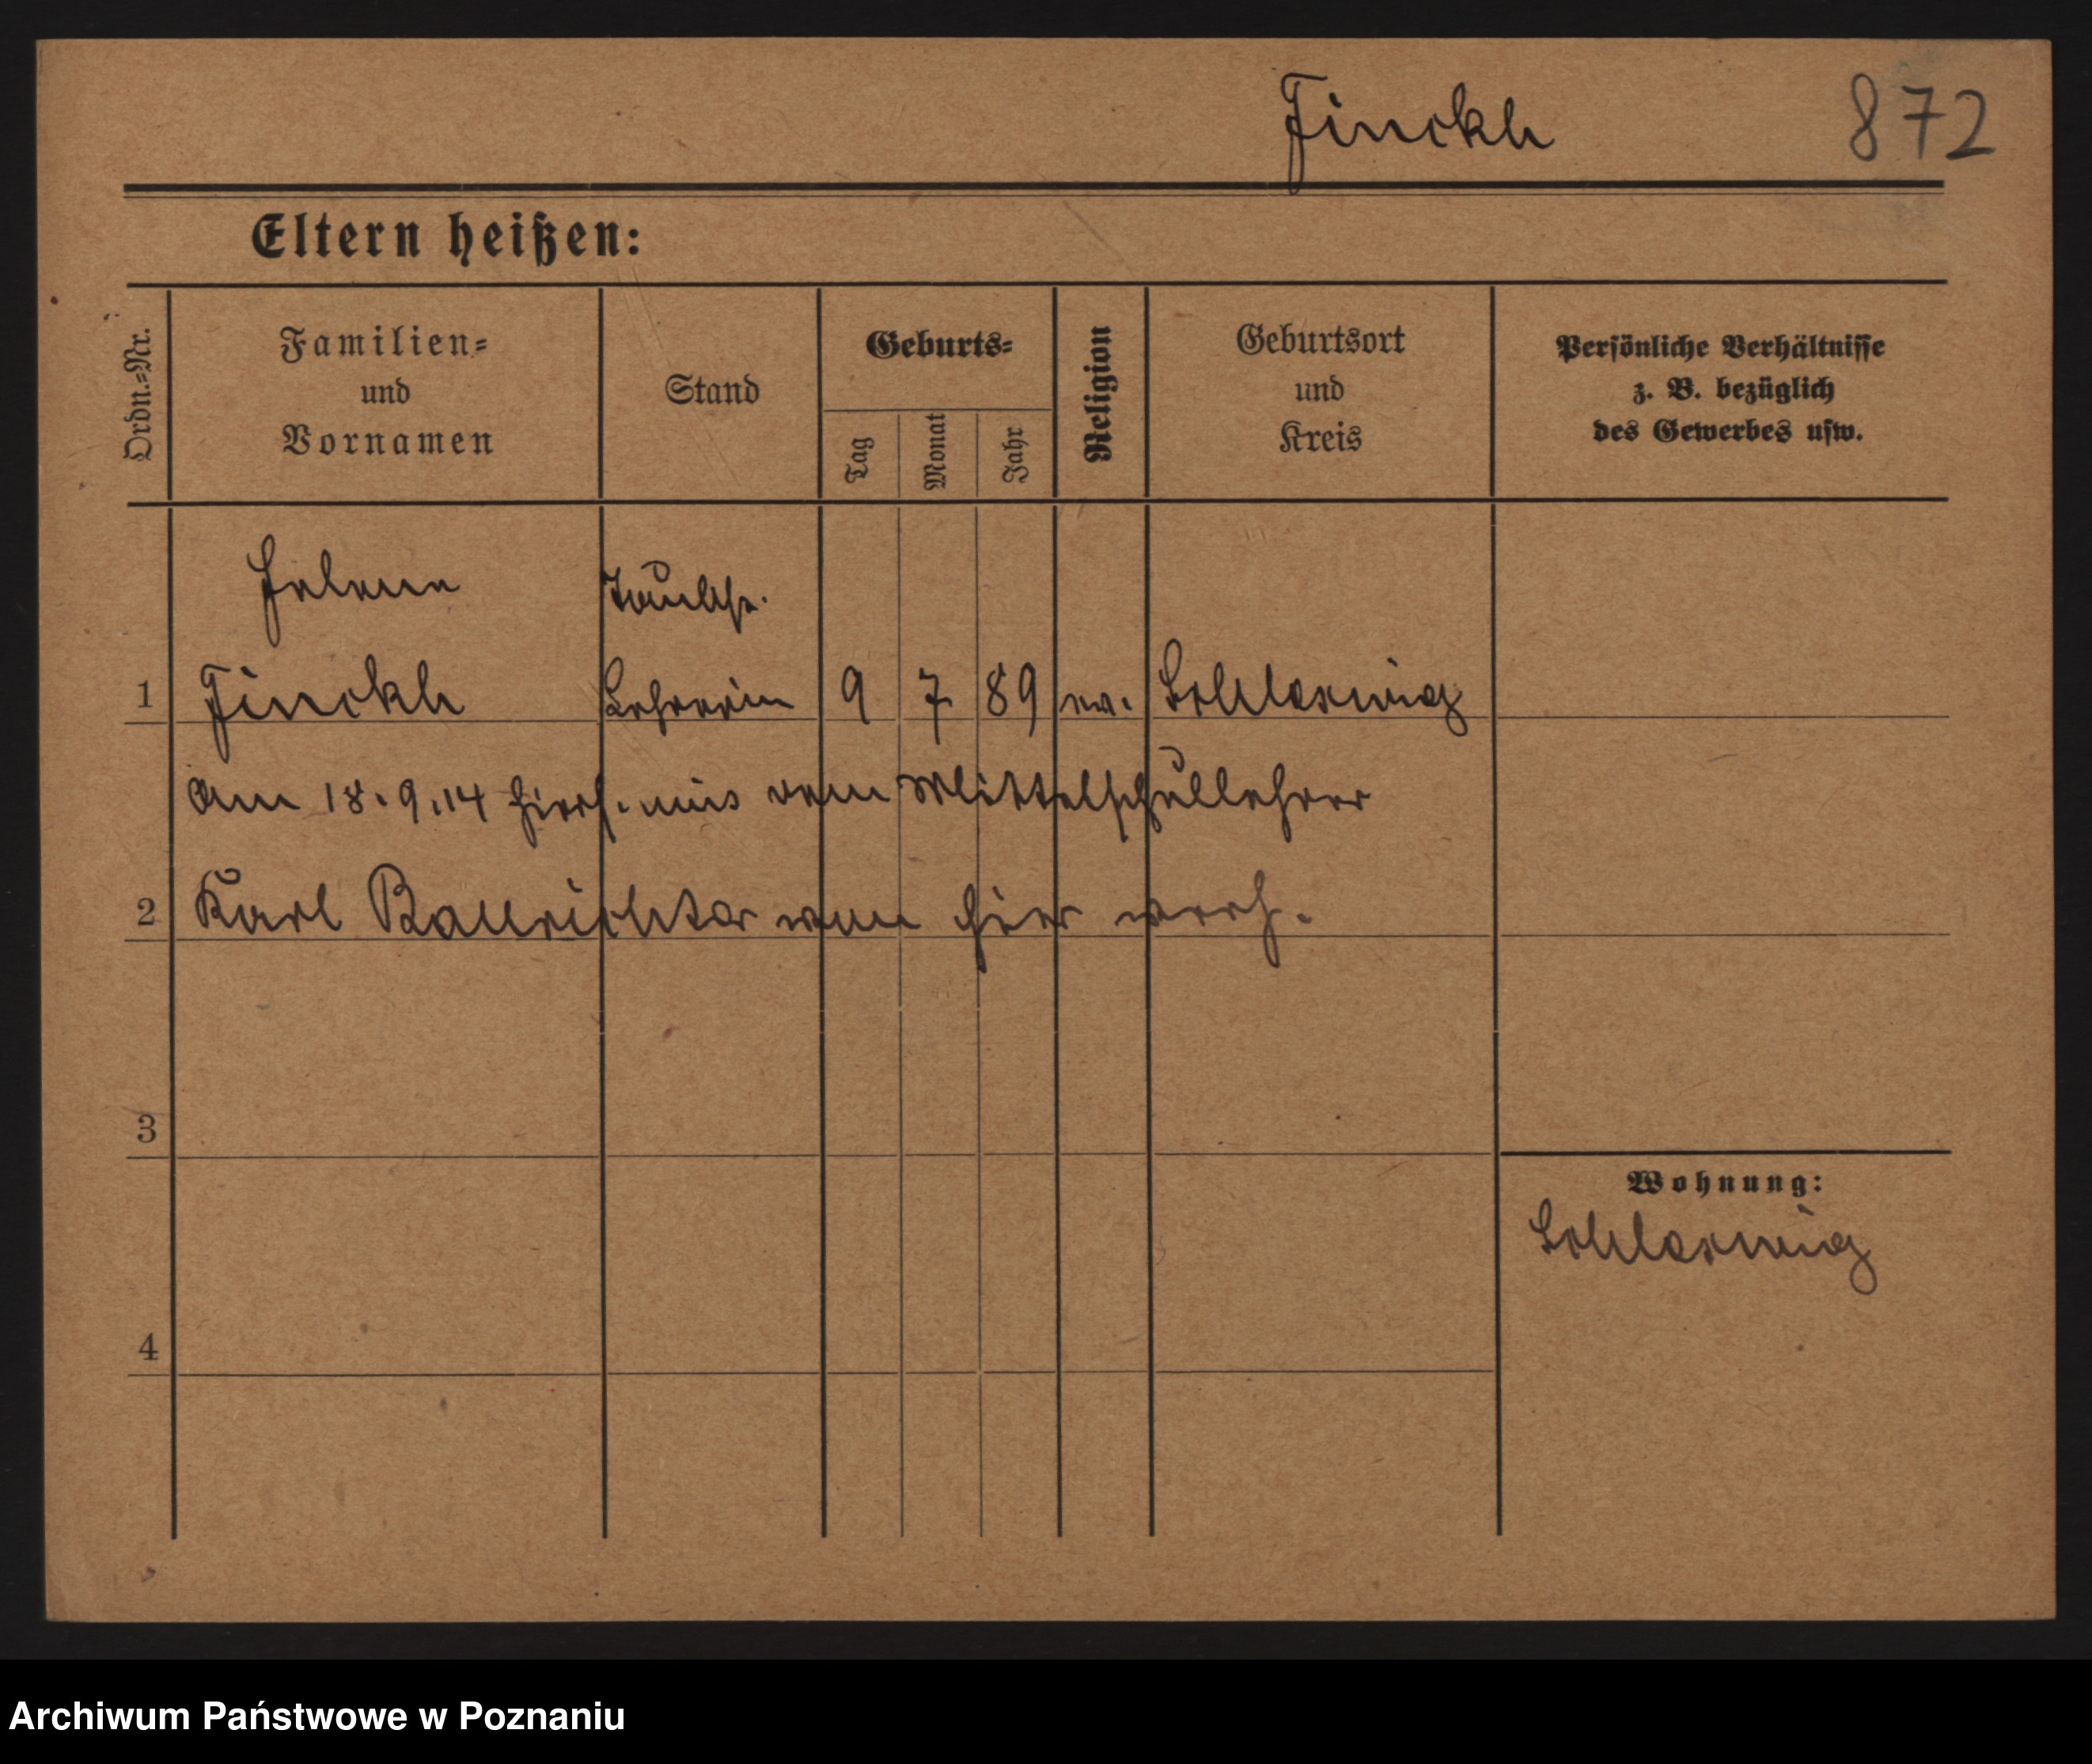 Finckh 872
Eltern heißen:
Ordn.=Nr.
Familien= und Vornamen
Stand
Geburts=
Tag
Monat
Jahr
Religion
Geburtsort und Kreis
Persönliche Verhältnisse z. B. bezüglich des Gewerbes usw.
Helene Taubst.
1 Finckh Lehrerin 9 7 89 ev. Schleswig
Am 18.9.14 hiers. mit dem Mittelschullehrer
2 Karl Baurichter von hier verh.
3
Wohnung:
Schleswig
4
Archiwum Państwowe w Poznaniu